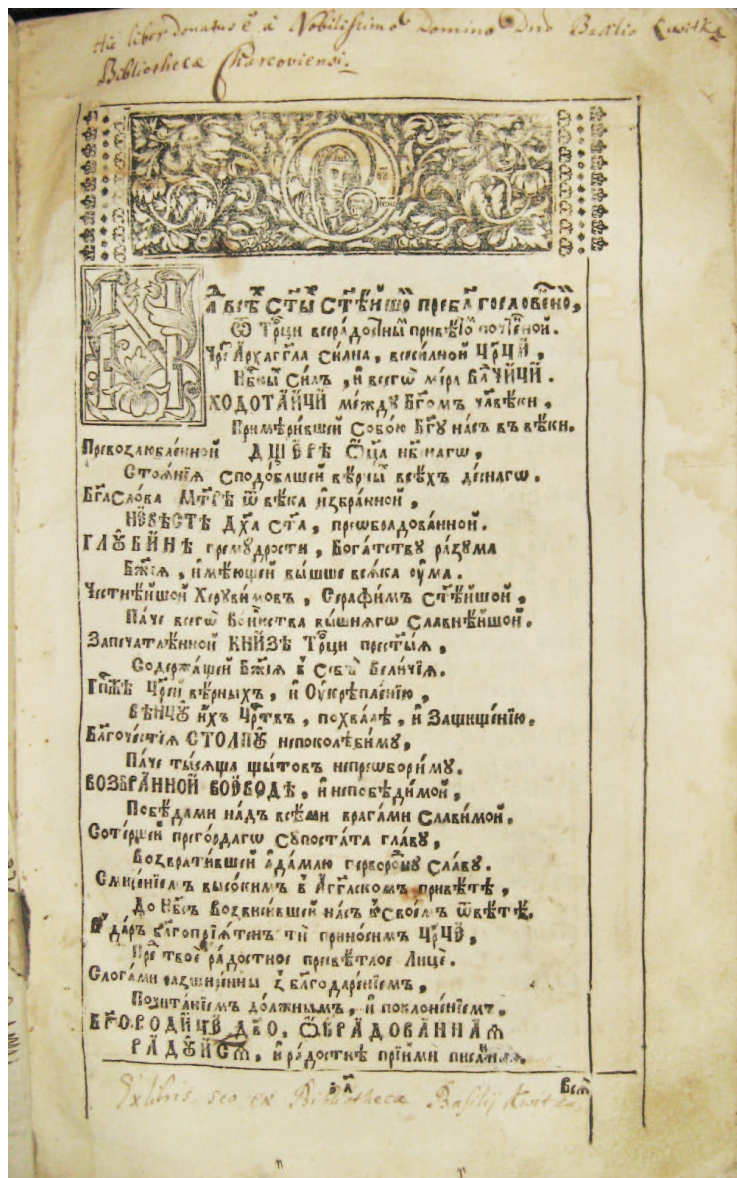 Hic liber donatus ē a Nobilissimo Domino Dno Basilio
Bibliothecæ Charcoviensi.
Ѿ Трⷪ҇ци
Архаⷢ҇гла Силна, всесилной Цр҃цѣ,
Нбⷭ҇ныⷯ Силъ, и҆ всегѡ̀ мі́ра Влⷣчицѣ.
ХОДОТАИЦѢ ме́жду Бг҃омъ члв҃ѣки,
Примѣри́вшей Собо́ю Бг҃у на́съ въ вѣ́ки.
Превозлюбле́нной ДЩЕРѢ Ѻ҆ц҃а нбⷭ҇нагѡ,
Стоѧ́нїѧ сподо́бльшей вѣ́рныⷯ всѣ́хъ десна́гѡ.
Бг҃а Сло́ва МТ҃РѢ ѿ вѣ́ка и҆збра́нной,
НЕВѢСТѢ Дх҃а Ст҃а, преѡбра́дова́нной.
ГЛУБИНѢ премꙋ́дрости, Бога́тству ра́зума
Бж҃їѧ, и҆мѣ́ющей вы́шше всѧ́ка оу҆ма.
Честнѣ́йшой Херуви́мовъ, Серафи́мъ Ст҃ѣ́йшой,
Па́че всегѡ̀ во́инства вы́шнѧгѡ Славнѣ́йшой.
Запечатлѣ́нной КНИЗѢ Трⷪ҇ци престы́ѧ,
Содержа́щей Бж҃їѧ в Себѣ̀ Вели́чїѧ.
Гпⷭ҇жѣ Цр҃ей вѣ́рныхъ, и҆ Оу҆крѣпле́нїю,
ВѢНЦУ и҆́хъ Црⷭ҇твъ, похва́лѣ, и҆ Защище́нїю.
Бл҃гоче́стїѧ СТОЛПУ непоколѣ́биму,
Па́че ты́сѧща щы́товъ непреѡбори́му.
ВОЗБРАННОЙ ВОЕВОДѢ, и҆ непобѣди́мой,
Побѣ́дами на́дъ всѣ́ми врага́ми Сла́вимой.
Соте́ршей прего́рдагѡ Супоста́та гла́ву,
Возврати́вшей А҆да́млю перворо́дну Сла́ву.
Смире́нїемъ высо́кимъ в А҆́гг҃лскомъ привѣ́тѣ,
До Нб҃съ Возвы́сившей на́съ в Свое́мъ ѿвѣ́тѣ.
В да́ръ бл҃гопрїѧ́тенъ тѝ прино́симъ Цр҃цѣ,
Преⷣ твоѐ ра́достное пресвѣ́тлое Лицѐ.
Слога́ми разшире́нны з бл҃годаре́нїемъ,
Почита́нїемъ до́лжнымъ, и҆ поклоне́нїемъ.
БГ҃ОРОДИЦЕ ДВ҃О, ѺБРАДОВАННАѦ
РАДУЙСѦ, и҆ ра́достнѣ прїими писа́ннаѧ.
Всѧ̀
Ex libris seo ex Bibliotheca Basilij